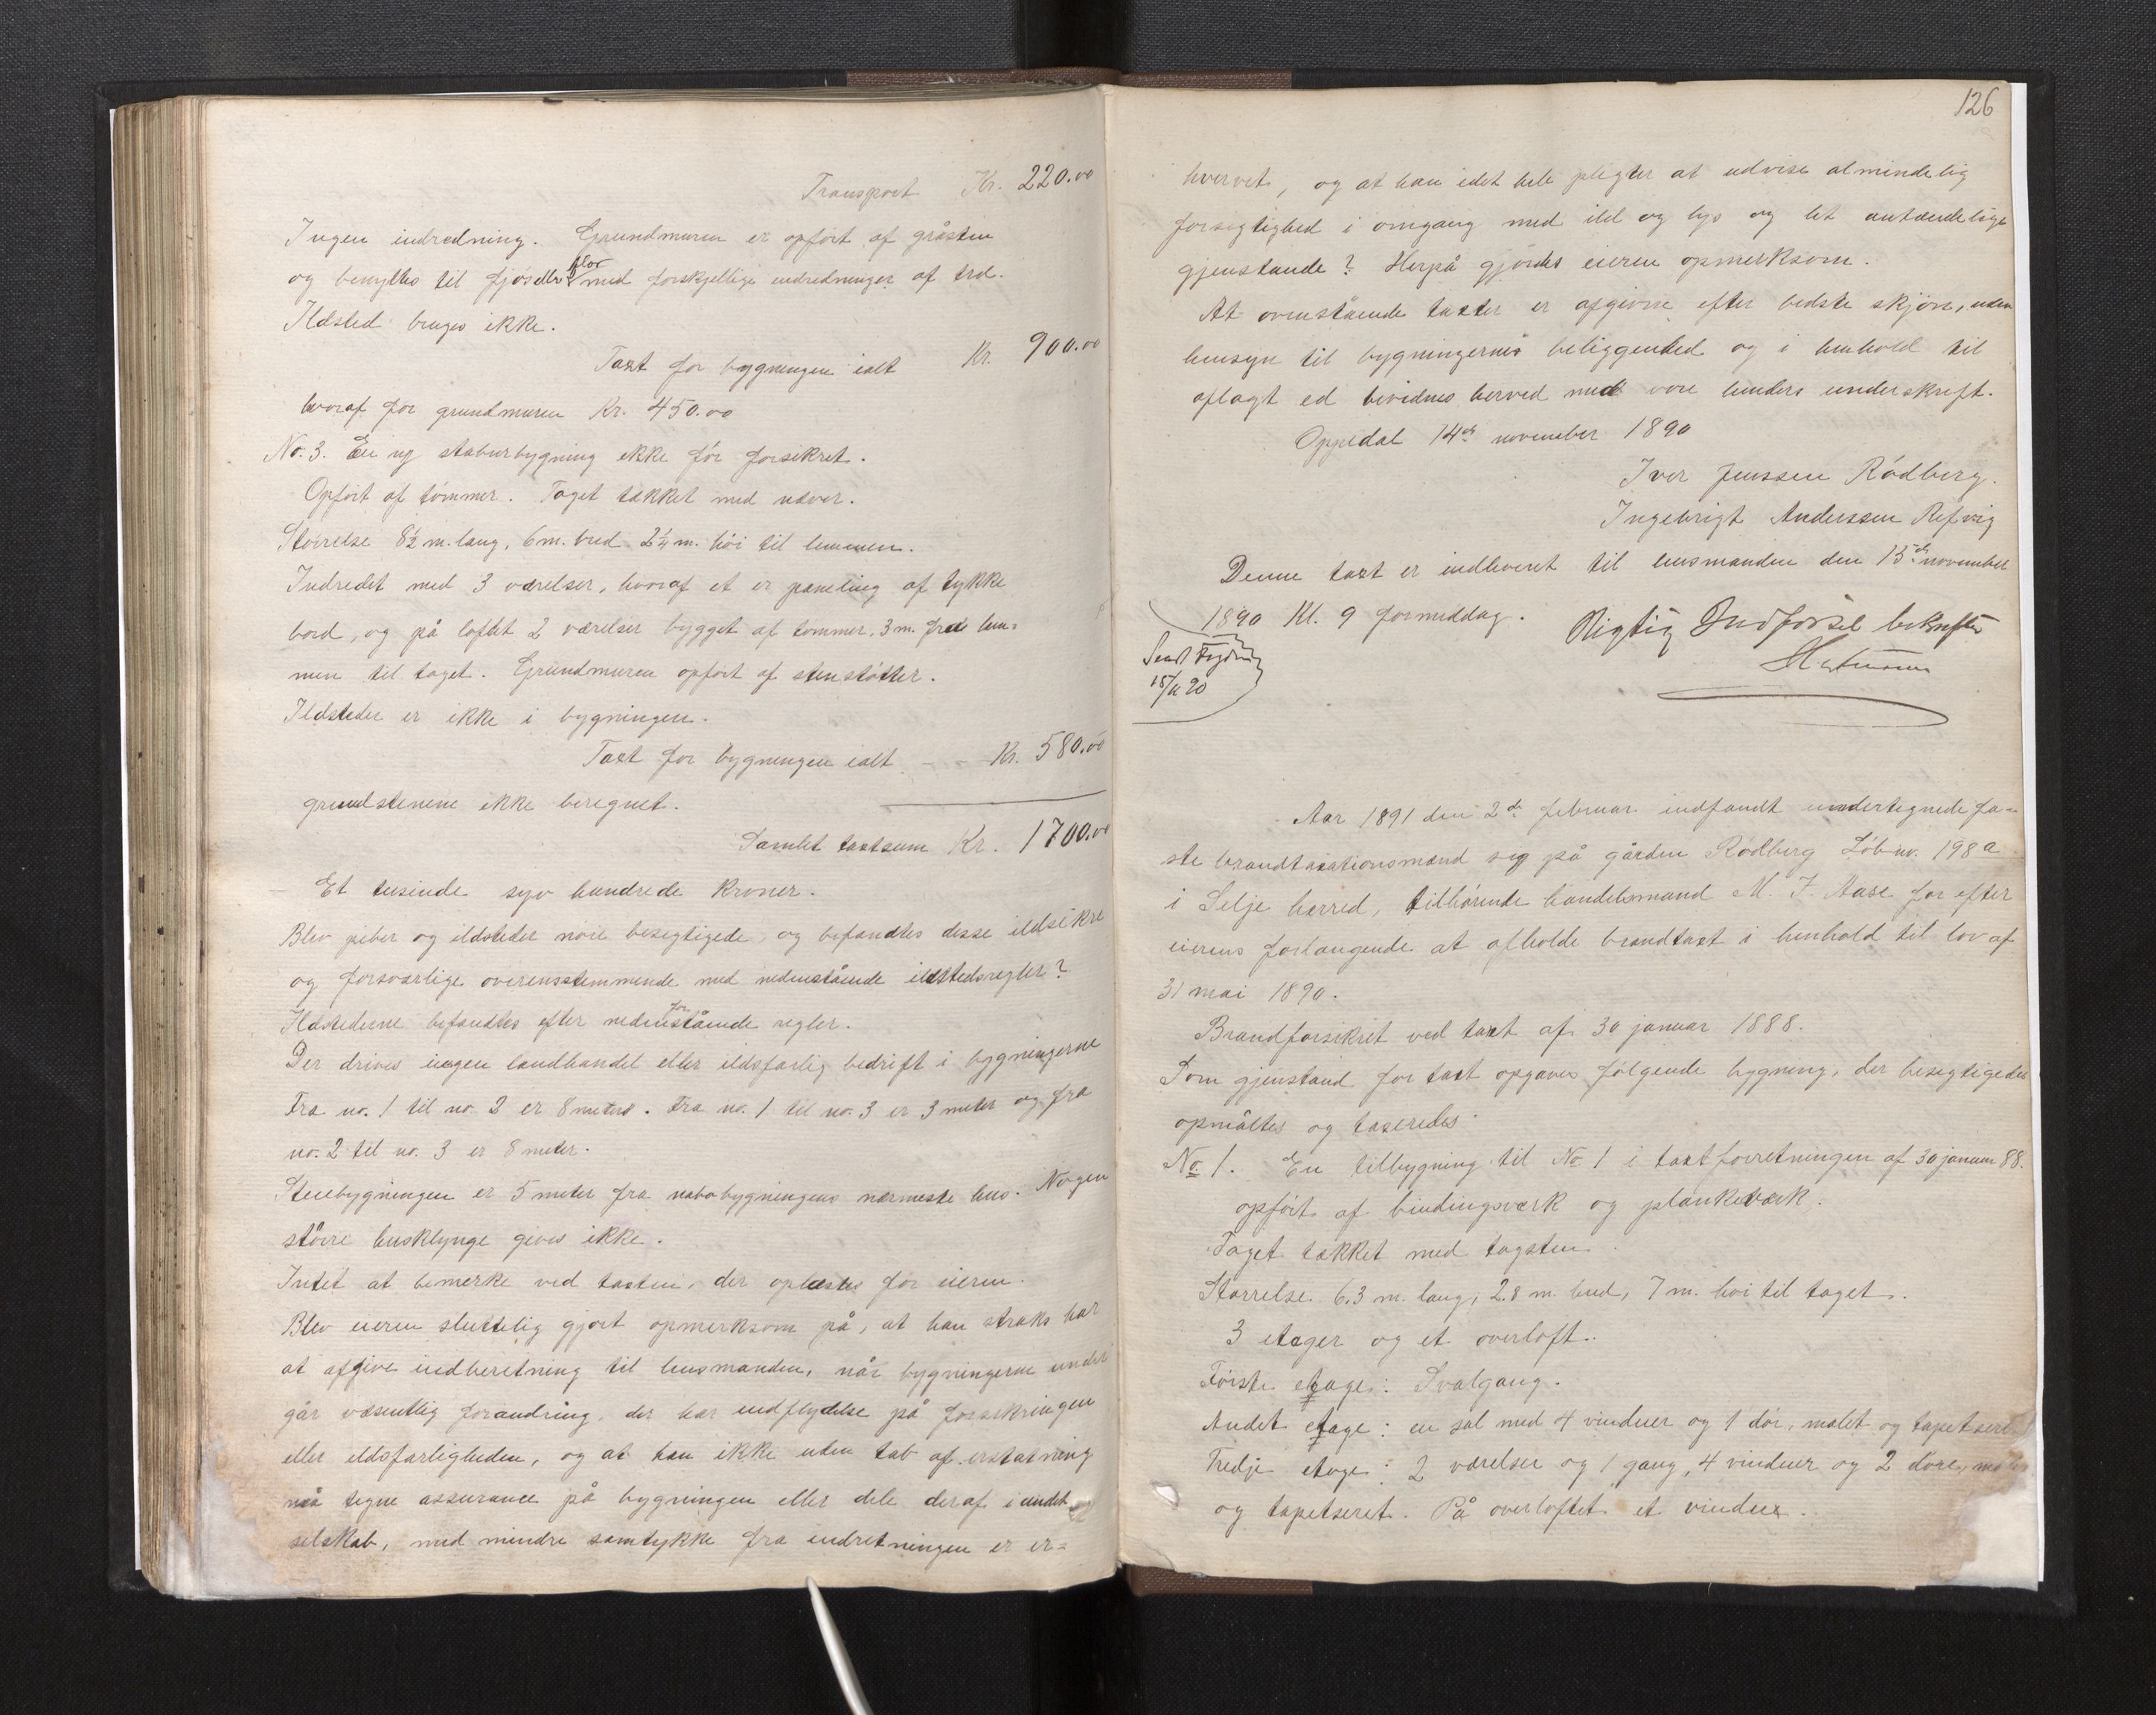 Transport Kr. 220.00
Ingen indredning. Grundmuren er opført af gråsten
og benyttes til fjøs eller flor med forskjellige indredninger af træ.
Ildsted bruges ikke.
Taxt for bygningen ialt Kr. 900.00
hvoraf for grundmuren Kr. 450.00
No. 3. En ny staburbygning ikke før forsikret.
Opført af tømmer. Taget tækket med næver.
Størrelse 8½ m. lang, 6 m. bred 2¼ m. høi til lemmen.
Indredet med 3 værelser, hvoraf et er paneling af tykke
bord, og på loftet 2 værelser bygget af tømmer, 3 m. fra lem=
men til taget. Grundmuren opført af stenstøtter.
Ildsteder er ikke i bygningen.
Taxt for bygningen ialt - - Kr. 580.00
grundstenene ikke beregnet.
Samlet taxtsum Kr. 1700.00
Et tusinde syv hundrede kroner.
Blev piber og ildsteder nøie besigtigede, og befandtes disse ildsikre
og forsvarlige overensstemmende med nedenstående ildstedsregler?
Ildstederne befandtes efter nedenforstående regler.
Der drives ingen landhandel eller ildsfarlig bedrift i bygningerne
Fra no. 1 til no. 2 er 8 meters. Fra no. 1 til no. 3 er 3 meter og fra
no. 2 til no. 3 er 8 meter.
Stuebygningen er 5 meter fra nabobygningens nærmeste hus. Nogen
større husklynge gives ikke.
Intet at bemerke ved taxten, der oplæstes for eieren.
Blev eieren sluttelig gjort opmerksom på, at han straks har
at afgive indberetning til lensmanden, når bygningerne under
går væsentlig forandring, der har indflydelse på forsikringen
eller ildsfarligheden, og at han ikke uden tab af erstatning
må tegne assurance på bygningen eller dele deraf i andet
selskab, med mindre samtykke fra indretningen er er=
126
hvervet, og at han idet hele pligter at udvise almindelig
forsigtighed i omgang med ild og lys og let antændelige
gjenstande? Herpå gjordes eieren opmerksom.
At ovenstående taxter er afgivne efter bedste skjøn, uden
hensyn til bygningernes beliggenhed og i henhold til
aflagt ed bevidnes herved med vore hænders underskrift.
Oppedal 14de november 1890
Iver Jenssen Rødberg.
Ingebrigt Anderssen Refvig
Denne taxt er indleveret til lensmanden den 15de november
1890 Kl. 9 formiddag. Rigtig Indførsel bekræfter
Sendt Fogden
15/11 90
Aar 1891 den 2de februar indfandt undertegnede fa=
ste brandtaxationsmænd sig på gården Rødberg Løb no. 198 a
i Selje herred, tilhørende handelsmand M. J. Aase for efter
eierens forlangende at afholde brandtaxt i henhold til lov af
31 mai 1890.
Brandforsikret ved taxt af 30 januar 1888.
Som gjenstand for taxt opgaves følgende bygning, der besigtigedes
opmåltes og taxeredes:
No 1. En tilbygning til No 1 i taxtforretningen af 30 januar 88.
opført af bindingsverk og plankeværk.
Taget tækket med tagsten.
Størrelse 6,3 m. lang, 2.8 m. bred, 7 m. høi til taget.
3 etager og et overloft.
Første etage: Svalgang.
Andet etage: en sal med 4 vinduer og 1 dør, malet og tapetseret
Tredje etage: 2 værelser og 1 gang, 4 vinduer og 2 døre,
og tapetseret. På overloftet et vindue.